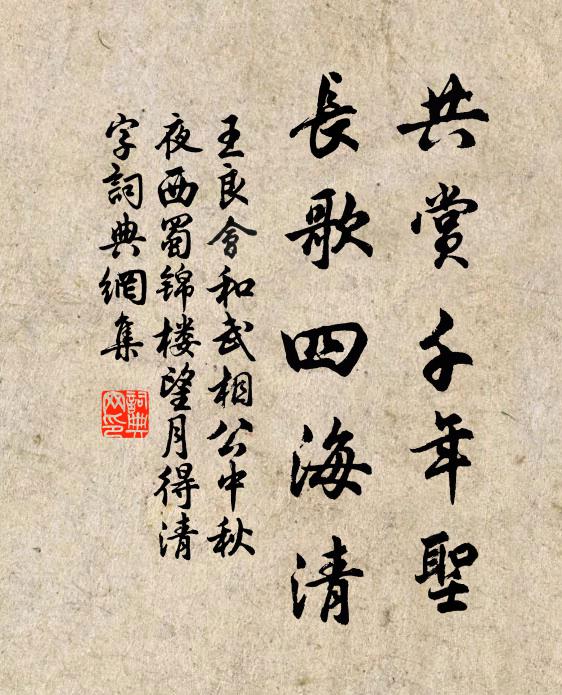 共賞千年聖
長歌四海清
王良會和武相公中秋
夜西蜀锦楼望月得清
字詞典網集
詞典
网印